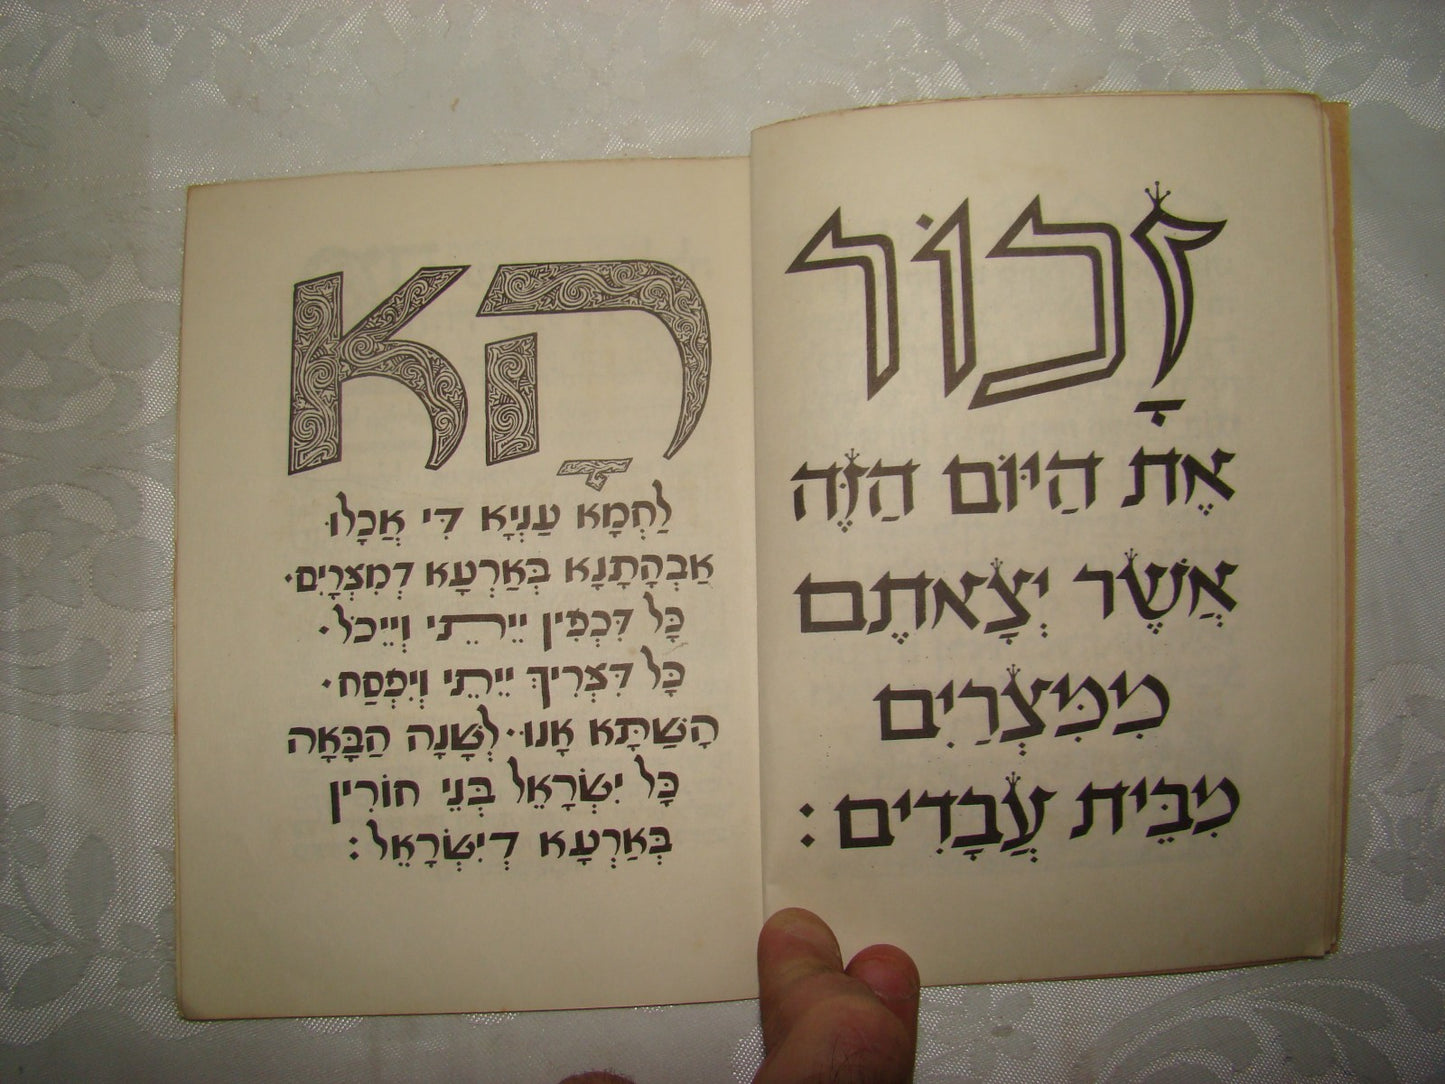 זָכוֹר
אֶת הַיּוֹם הַזֶּה
אֲשֶׁר יְצָאתֶם
מִמִּצְרַיִם
מִבֵּית עֲבָדִים:
הָא
לַחְמָא עַנְיָא דִּי אֲכָלוּ
אַבְהָתָנָא בְּאַרְעָא דְמִצְרָיִם.
כָּל דִּכְפִין יֵיתֵי וְיֵיכֹל.
כָּל דִּצְרִיךְ יֵיתֵי וְיִפְסַח.
הָשַּׁתָּא אָנוּ. לְשָׁנָה הַבָּאָה
כָּל יִשְׂרָאֵל בְּנֵי חוֹרִין
בְּאַרְעָא דְיִשְׂרָאֵל: